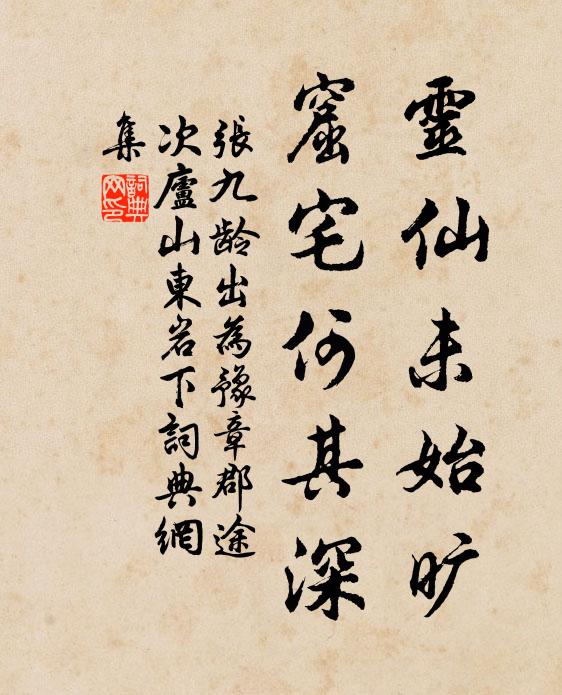 靈仙未始旷
窟宅何其深
張九龄出為豫章郡途
次廬山東岩下詞典網
集
詞典
网印